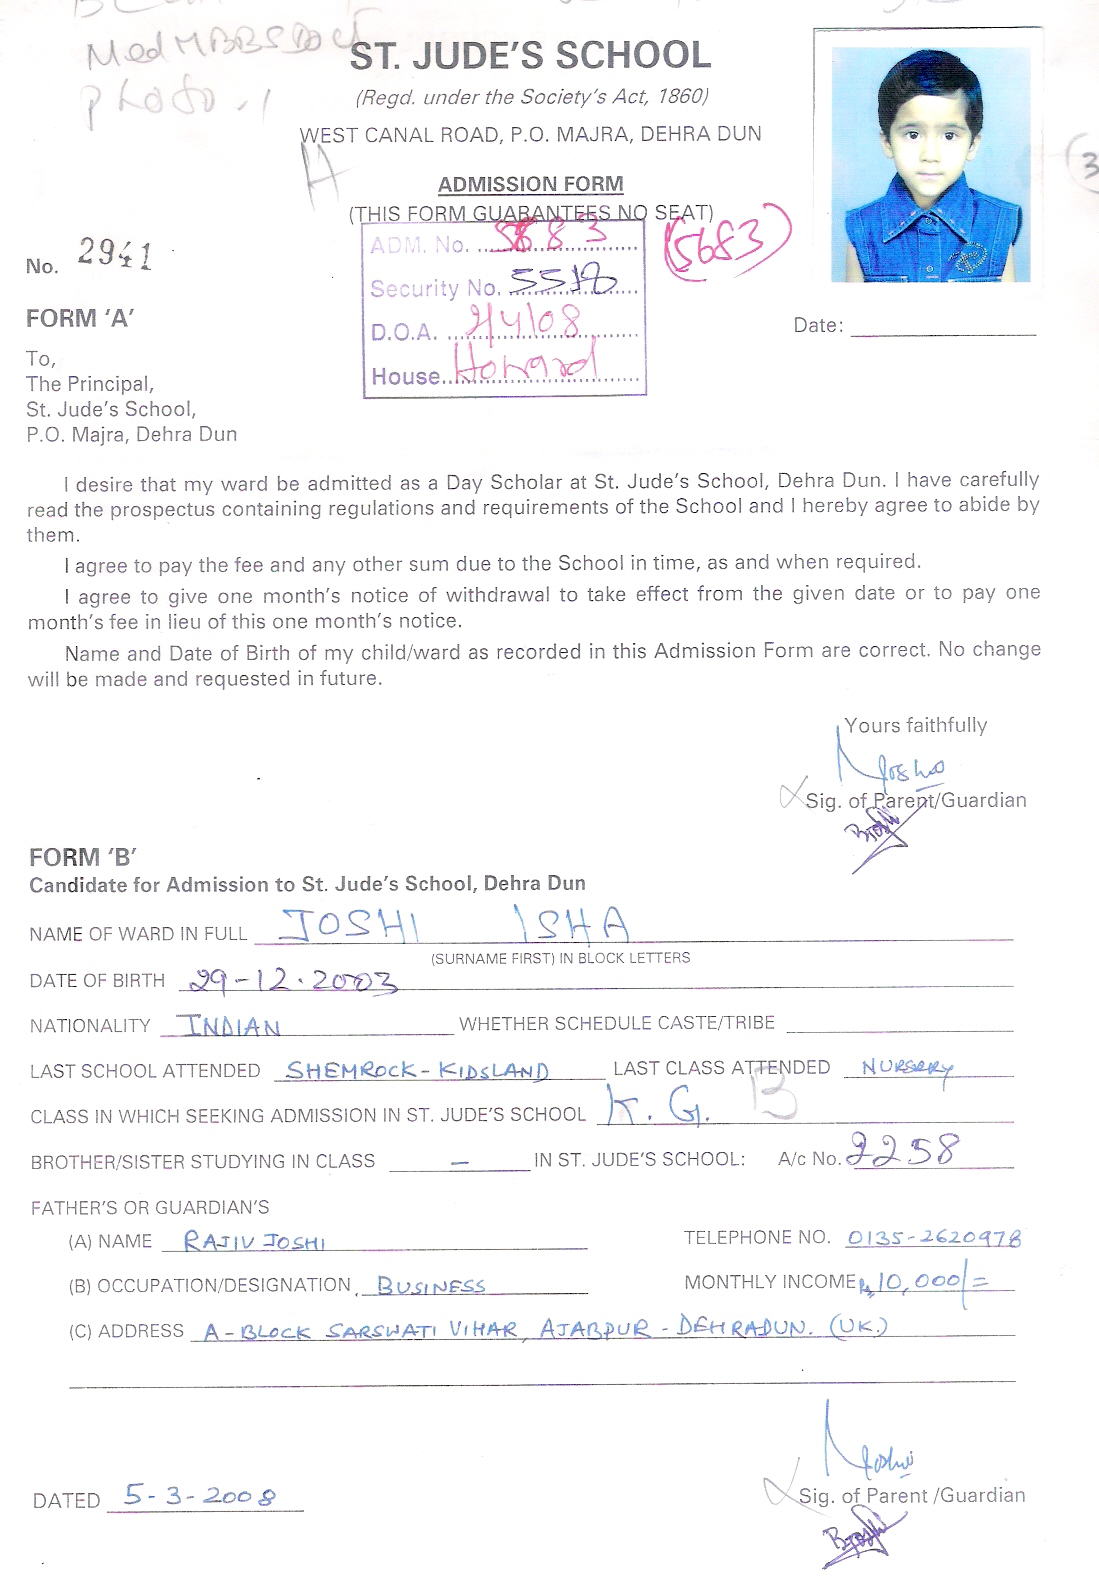 Med MBBS Doct
Photo. 1
ST. JUDE'S SCHOOL
(Regd. under the Society's Act, 1860)
WEST CANAL ROAD, P.O. MAJRA, DEHRA DUN
A
3
ADMISSION FORM
(THIS FORM GUARANTEES NO SEAT)
ADM. No. 5683 (5683)
No. 2941
Security No. 5518
D.O.A. 2/4/08
House Howard
FORM 'A'
Date:
To,
The Principal,
St. Jude's School,
P.O. Majra, Dehra Dun
I desire that my ward be admitted as a Day Scholar at St. Jude's School, Dehra Dun. I have carefully
read the prospectus containing regulations and requirements of the School and I hereby agree to abide by
them.
I agree to pay the fee and any other sum due to the School in time, as and when required.
I agree to give one month's notice of withdrawal to take effect from the given date or to pay one
month's fee in lieu of this one month's notice.
Name and Date of Birth of my child/ward as recorded in this Admission Form are correct. No change
will be made and requested in future.
Yours faithfully
Joshi
Sig. of Parent/Guardian
BJoshi
FORM 'B'
Candidate for Admission to St. Jude's School, Dehra Dun
NAME OF WARD IN FULL JOSHI ISHA
(SURNAME FIRST) IN BLOCK LETTERS
DATE OF BIRTH 29-12.2003
NATIONALITY INDIAN WHETHER SCHEDULE CASTE/TRIBE
LAST SCHOOL ATTENDED SHEMROCK-KIDSLAND LAST CLASS ATTENDED NURSERY
CLASS IN WHICH SEEKING ADMISSION IN ST. JUDE'S SCHOOL K.G. B
BROTHER/SISTER STUDYING IN CLASS – IN ST. JUDE'S SCHOOL: A/c No. 2258
FATHER'S OR GUARDIAN'S
(A) NAME RAJIV JOSHI TELEPHONE NO. 0135-2620978
(B) OCCUPATION/DESIGNATION BUSINESS MONTHLY INCOME Rs 10,000/=
(C) ADDRESS A-BLOCK SARSWATI VIHAR, AJABPUR-DEHRADUN. (UK.)
Joshi
DATED 5-3-2008
Sig. of Parent /Guardian
BJoshi